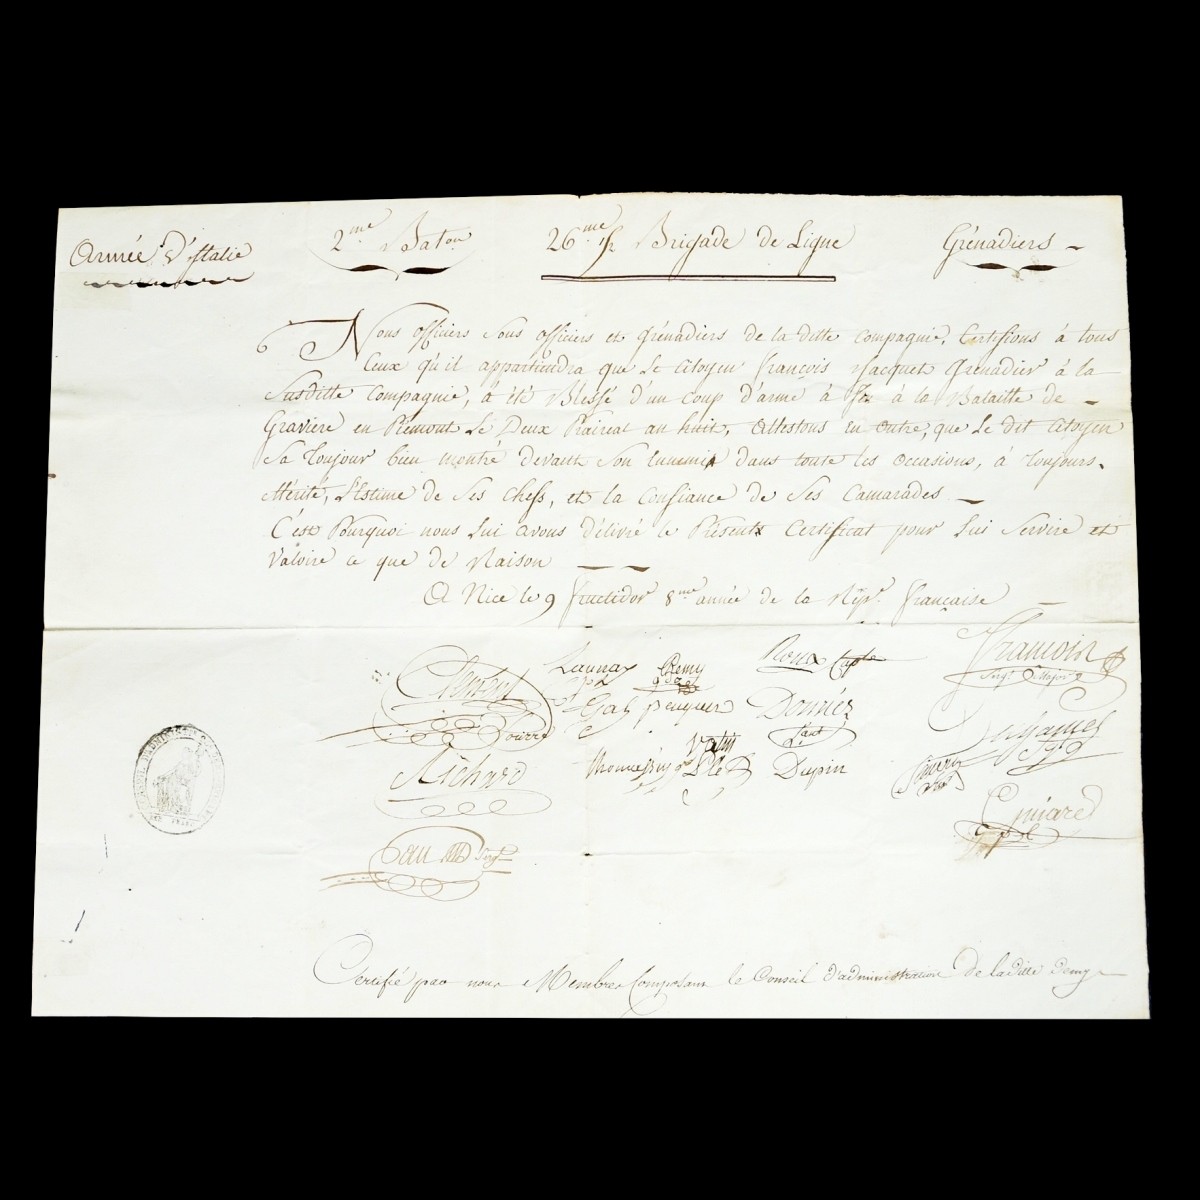 Armée D'Italie 2me Baton 26me 1/2 Brigade de Ligne Grénadiers
Nous officiers sous officiers et Grénadiers de la ditte compagnie, Certifions à tous
Ceux qu'il appartiendra que Le Citoyen François Jacquet Grénadier à la
Susditte Compagnie, à été Blessé d'un Coup d'arme à feu à la Bataille de
Graviere en Piémont Le Deux Prairial an huit, Attestons En Outre, que Le dit Citoyen
Sa Toujour bien montré devant Son Ennemis dans toute les Occasions, à Toujours
Mérité, L'Estime de Ses Chefs, et la Confiance de Ses Camarades
C'est Pourquoi nous Lui avons Délivré le Présent Certificat pour Lui Servire et
Valoire ce que de Raison
A Nice le 9 fructidor 8me année de la Répe. française
Clement Launay Remy Roux Caple Francoin
Sergt Major
Gal pecquer Donniez
Pourre Lieut
Richard Vatin Dupin
Guiard
Certifié par nous Membres Composant le Conseil d'administration De la ditte Demy